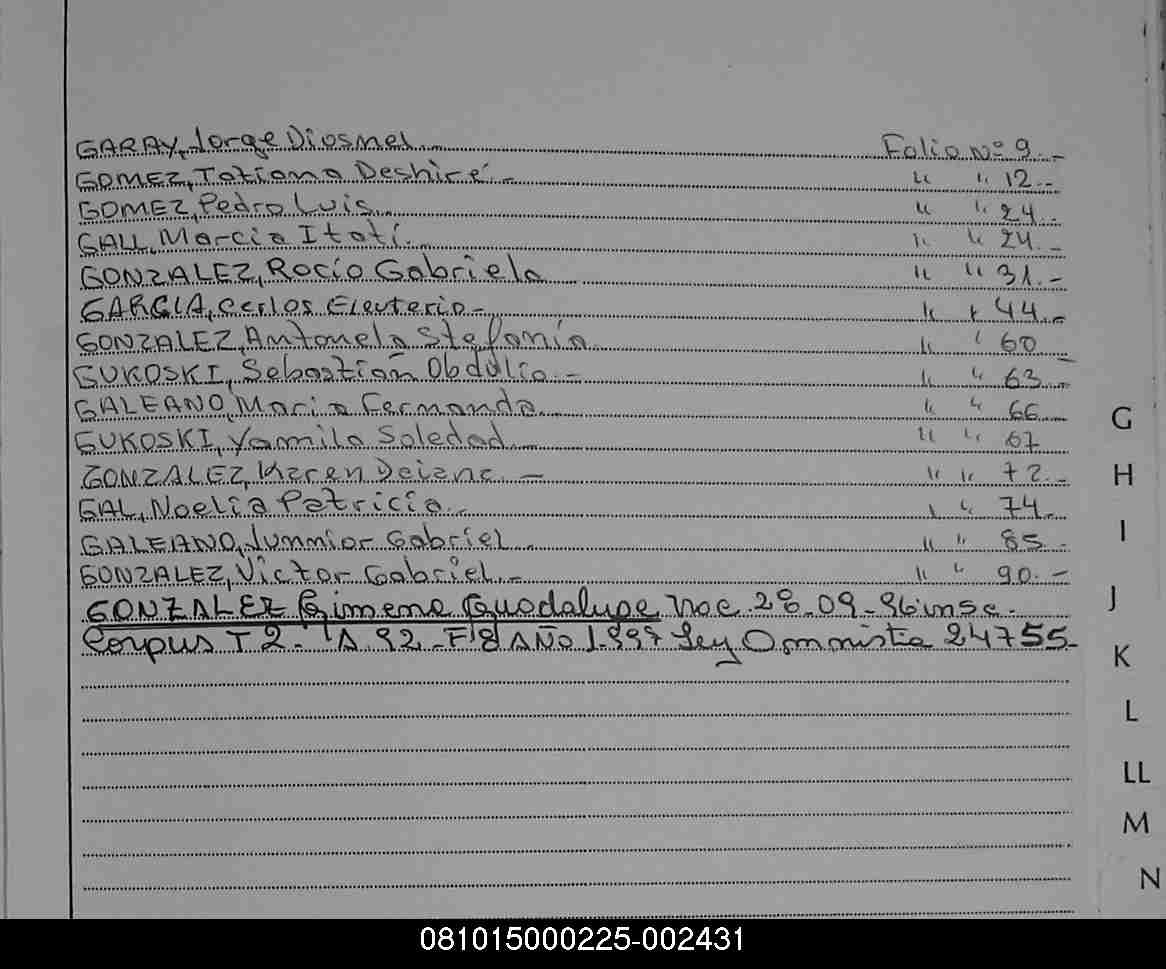 GARAY, Jorge Diosnel.- Folio Nº 9.-
GOMEZ, Tatiana Deshiré.- " " 12.-
GOMEZ, Pedro Luis.- " " 24.-
GALL, Marcia Itatí.- " " 24.-
GONZALEZ, Rocío Gabriela " " 31.-
GARCIA, Carlos Eleuterio.- " " 44.-
GONZALEZ, Antonela Stefanía " " 60
GUKOSKI, Sebastián Obdulio.- " " 63.-
GALEANO, Maria Fernanda.- " " 66
GUKOSKI, Yamila Soledad.- " " 67
GONZALEZ, Karen Deiana.- " " 72.-
GAL, Noelia Patricia.- " " 74.-
GALEANO, Junnior Gabriel " " 85.-
GONZALEZ, Victor Gabriel.- " " 90.-
GONZALEZ Gimena Guadalupe Nac. 28-09-96 insc.
Corpus T 2. A 92 - F 8 AÑO 1.997 Ley 24755-
G
H
I
J
K
L
LL
M
N
081015000225-002431